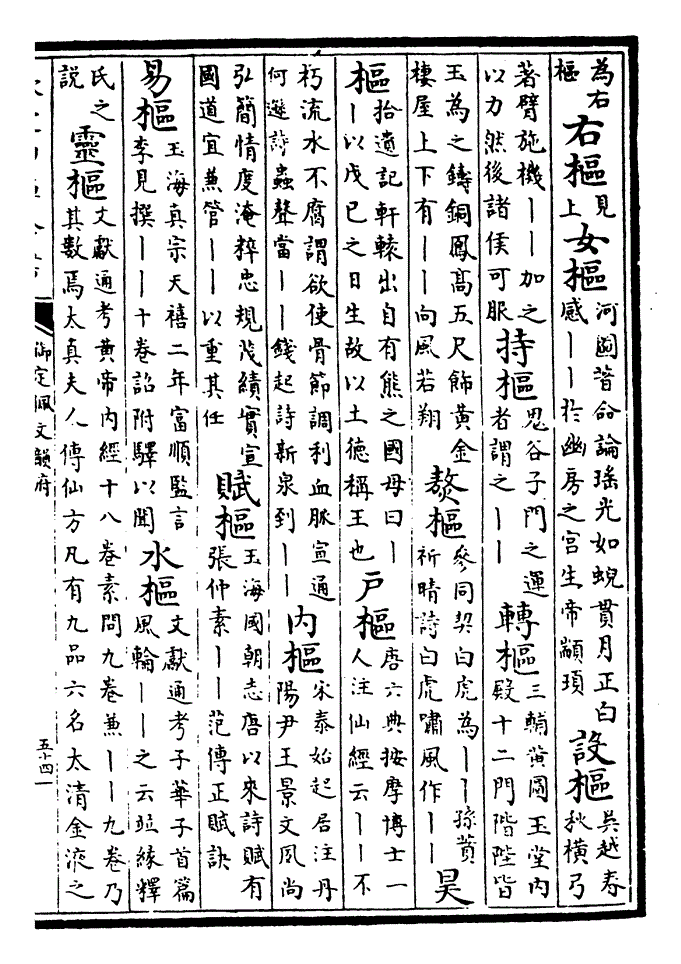 為右
樞
右樞
見
上
女樞
河圖著命論瑤光如蜺貫月正白
感丨丨於幽房之宮生帝顓頊
設樞
吳越春
秋橫弓
著臂施機丨丨加之
以力然後諸侯可服
持樞
鬼谷子門之運
者謂之丨丨
轉樞
三輔黃圖玉堂内
殿十二門階陛皆
玉為之鑄銅鳳髙五尺飾黄金
棲屋上下有丨丨向風若翔
熬樞
參同契白虎為丨丨孫蕡
祈晴詩白虎嘯風作丨丨
昊
樞
拾遺記軒轅出自有熊之國母曰丨
丨以戊巳之日生故以土德稱王也
户樞
唐六典按摩博士一
人注仙經云丨丨不
朽流水不腐謂欲使骨節調利血脈宣通
何遜詩蟲聲當丨丨錢起詩新泉到丨丨
内樞
宋泰始起居注丹
陽尹王景文夙尚
弘簡情度淹粹忠規茂績實宣
國道宜兼管丨丨以重其任
賦樞
玉海國朝志唐以來詩賦有
張仲素丨丨范傳正賦訣
易樞
玉海真宗天禧二年富順監言
李見撰丨丨十卷詔附驛以聞
水樞
文獻通考子華子首篇
風輪丨丨之云竝緣釋
氏之
説
靈樞
文獻通考黄帝内經十八卷素問九卷兼丨丨九卷乃
其數焉太真夫人傳仙方凡有九品六名太清金液之
御定佩文韻府
五十四